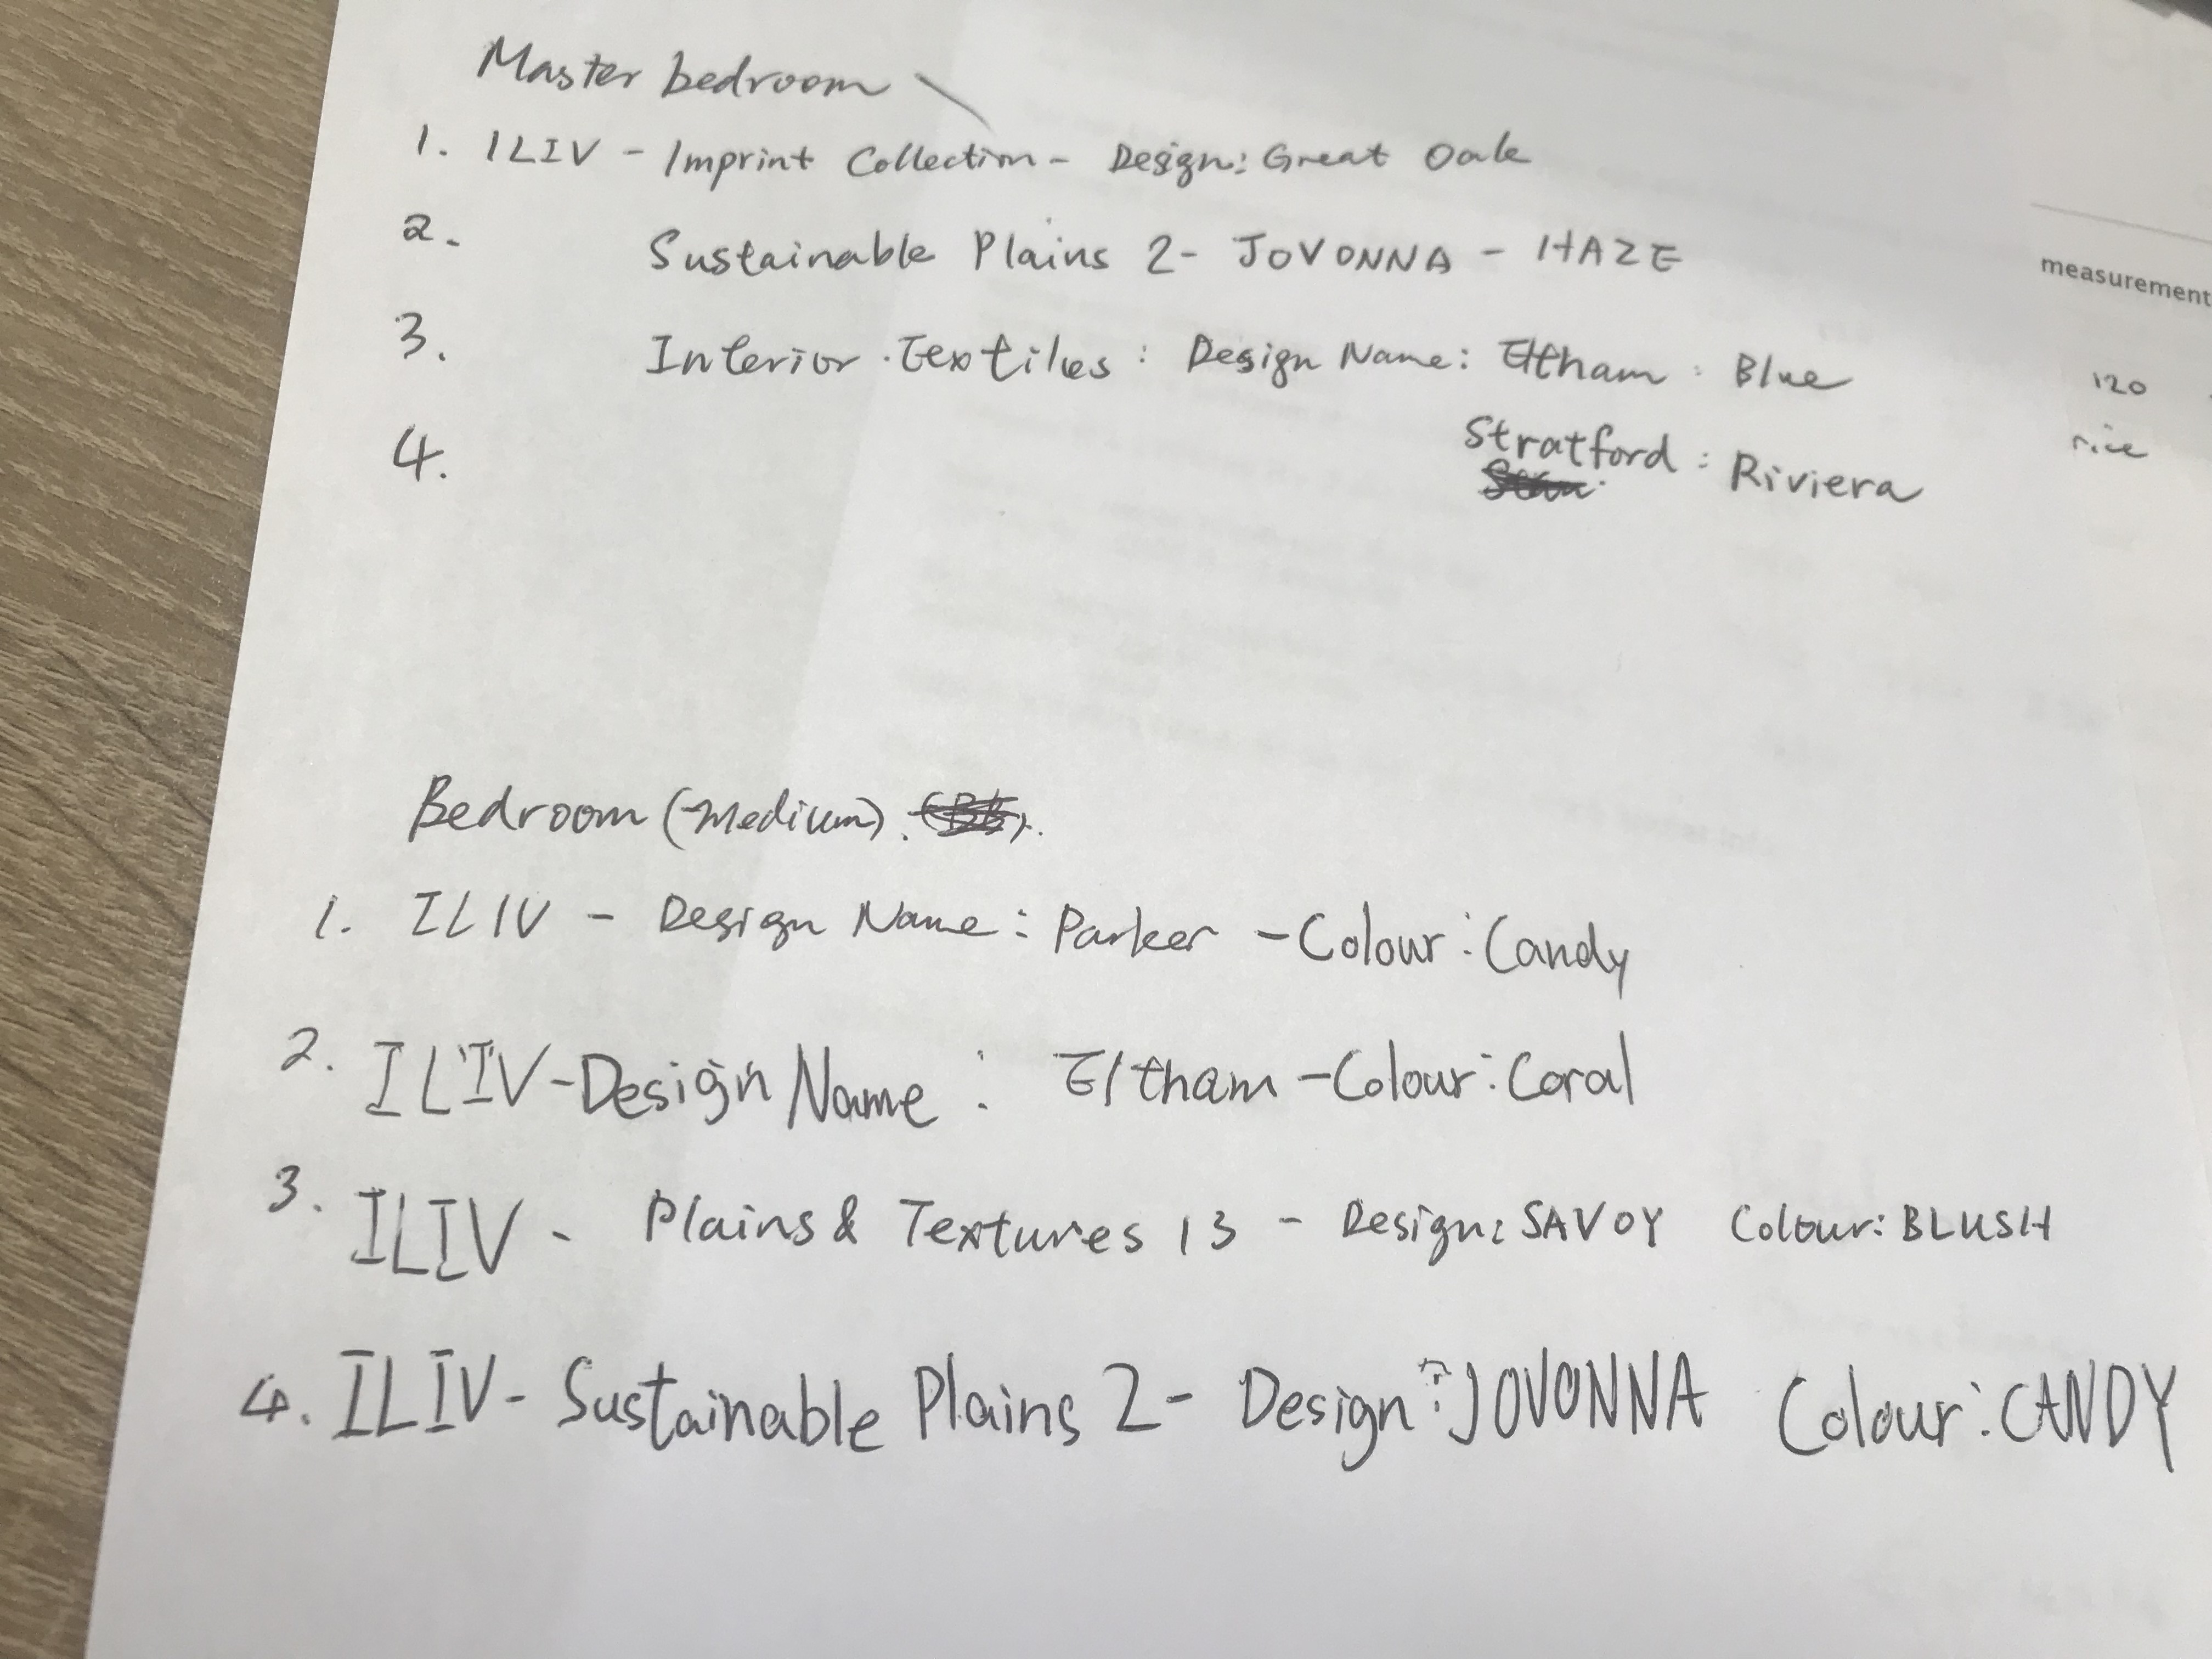 Master bedroom
1. ILIV - Imprint Collection - Design: Great Oak
2. Sustainable Plains 2 - JOVONNA - HAZE
measurement
3. Interior Textiles : Design Name: Eltham : Blue
120
4. Stratford : Riviera
Bedroom (Medium).
1. ILIV - Design Name: Parker - Colour: Candy
2. ILIV - Design Name : Eltham - Colour: Coral
3. ILIV - Plains & Textures 13 - Design: SAVOY Colour: BLUSH
4. ILIV - Sustainable Plains 2 - Design: JOVONNA Colour: CANDY